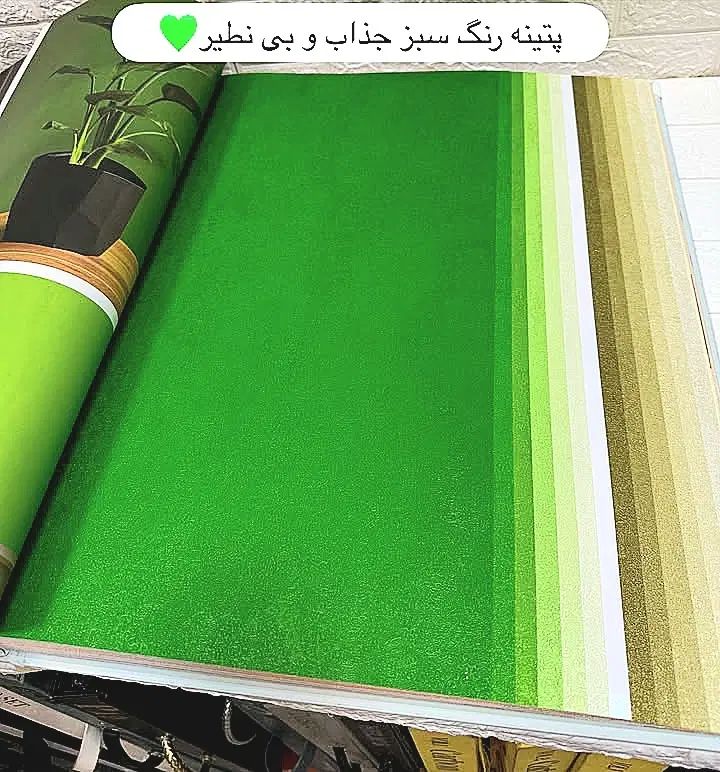 پتینه رنگ سبز جذاب و بی نطیر💚